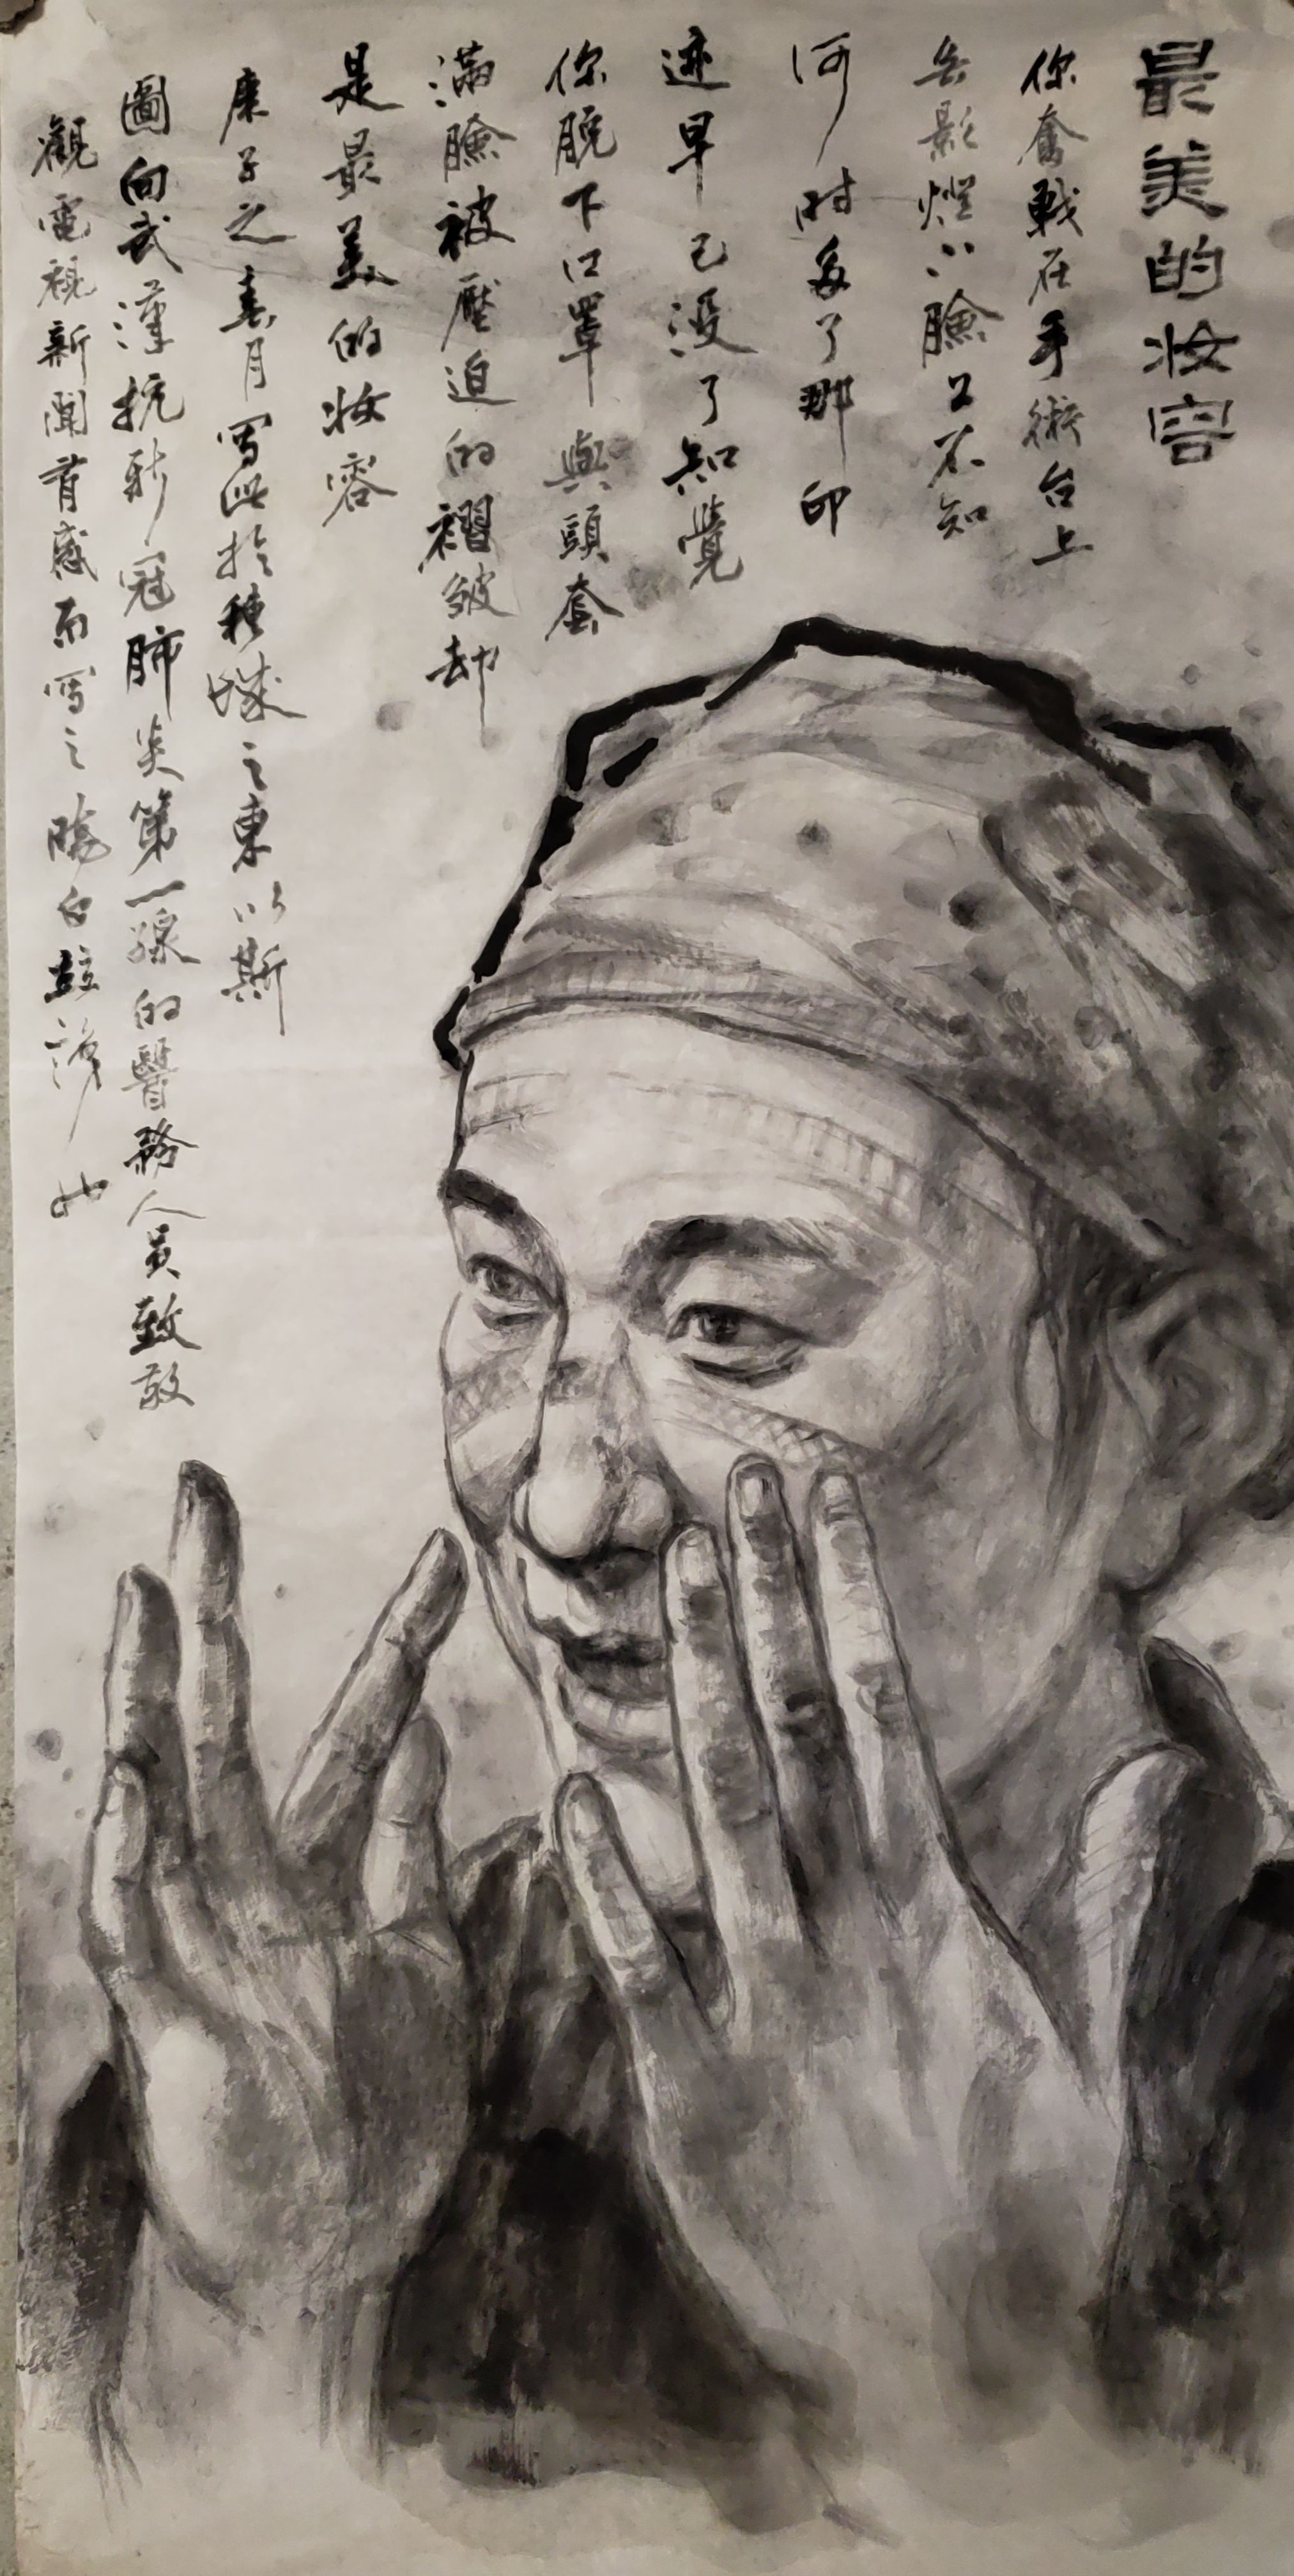 最美的妆容
你奮戰在手術台上
無影燈下臉上不知
何時多了那印
迹早已没了知覺
你脫下口罩與頭套
滿臉被壓迫的褶皱却
是最美的妆容
庚子之春月写此於穗城之東以斯
圖向武漢抗新冠肺炎第一線的醫務人員致敬
觀電視新聞有感而写之